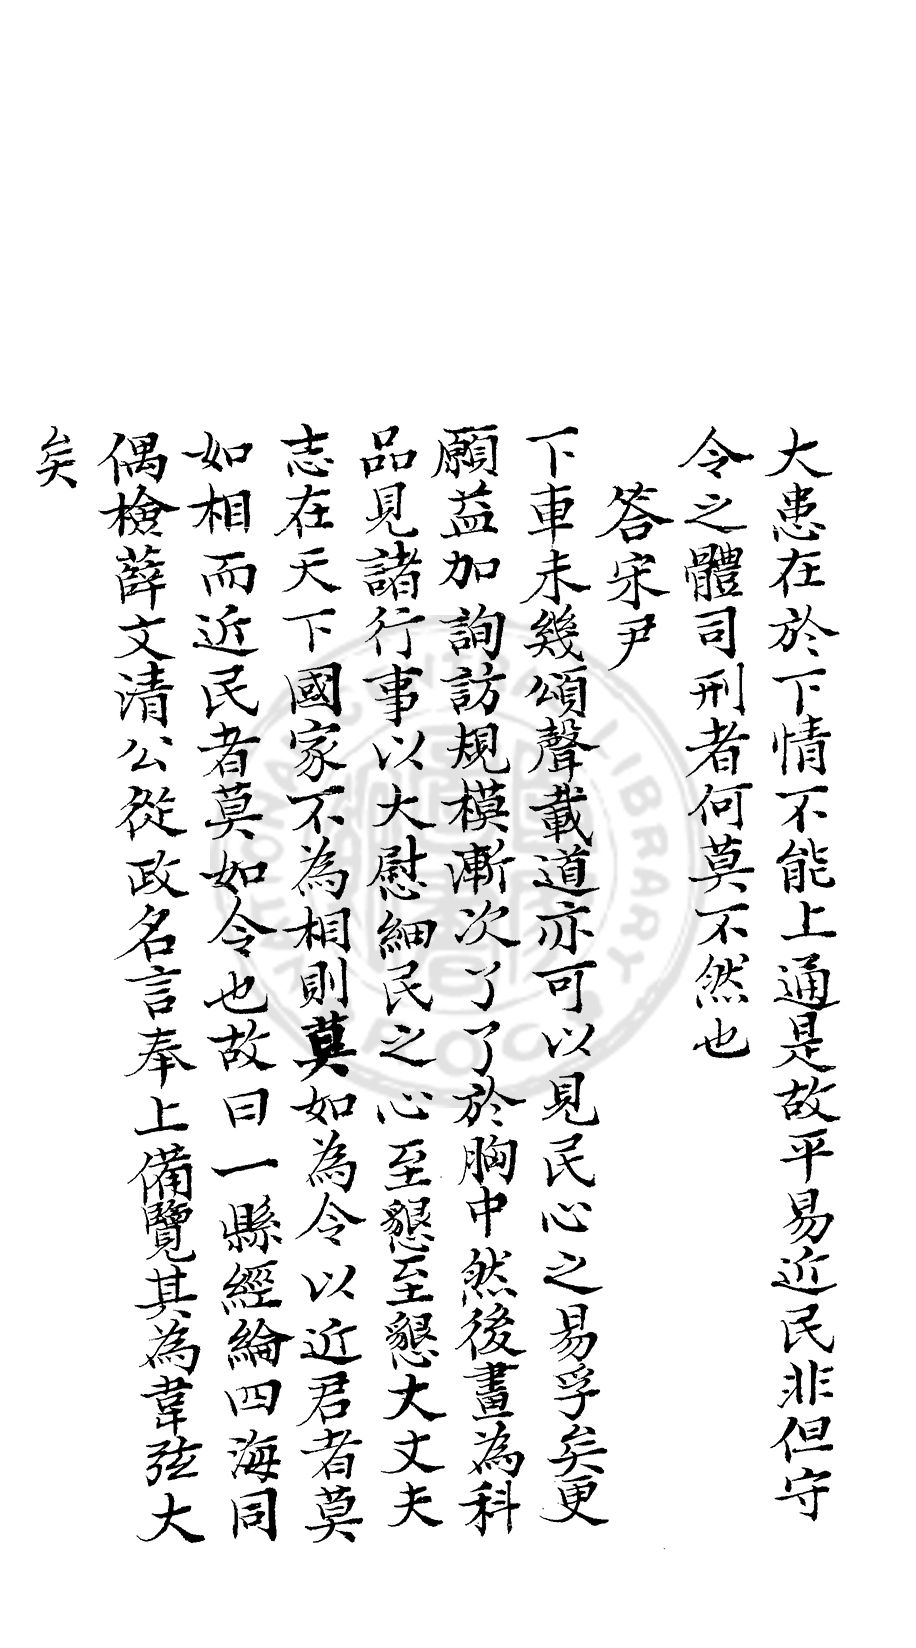 大患在於下情不能上通是故平易近民非但守
令之體司刑者何莫不然也
答宋尹
下車未幾頌聲載道亦可以見民心之易孚矣更
願益加詢訪規模漸次了了於胸中然後畫為科
品見諸行事以大慰細民之心至懇至懇大丈夫
志在天下國家不為相則莫如為令以近君者莫
如相而近民者莫如令也故曰一縣經綸四海同
偶檢薛文清公從政名言奉上備覽其為韋弦大
矣